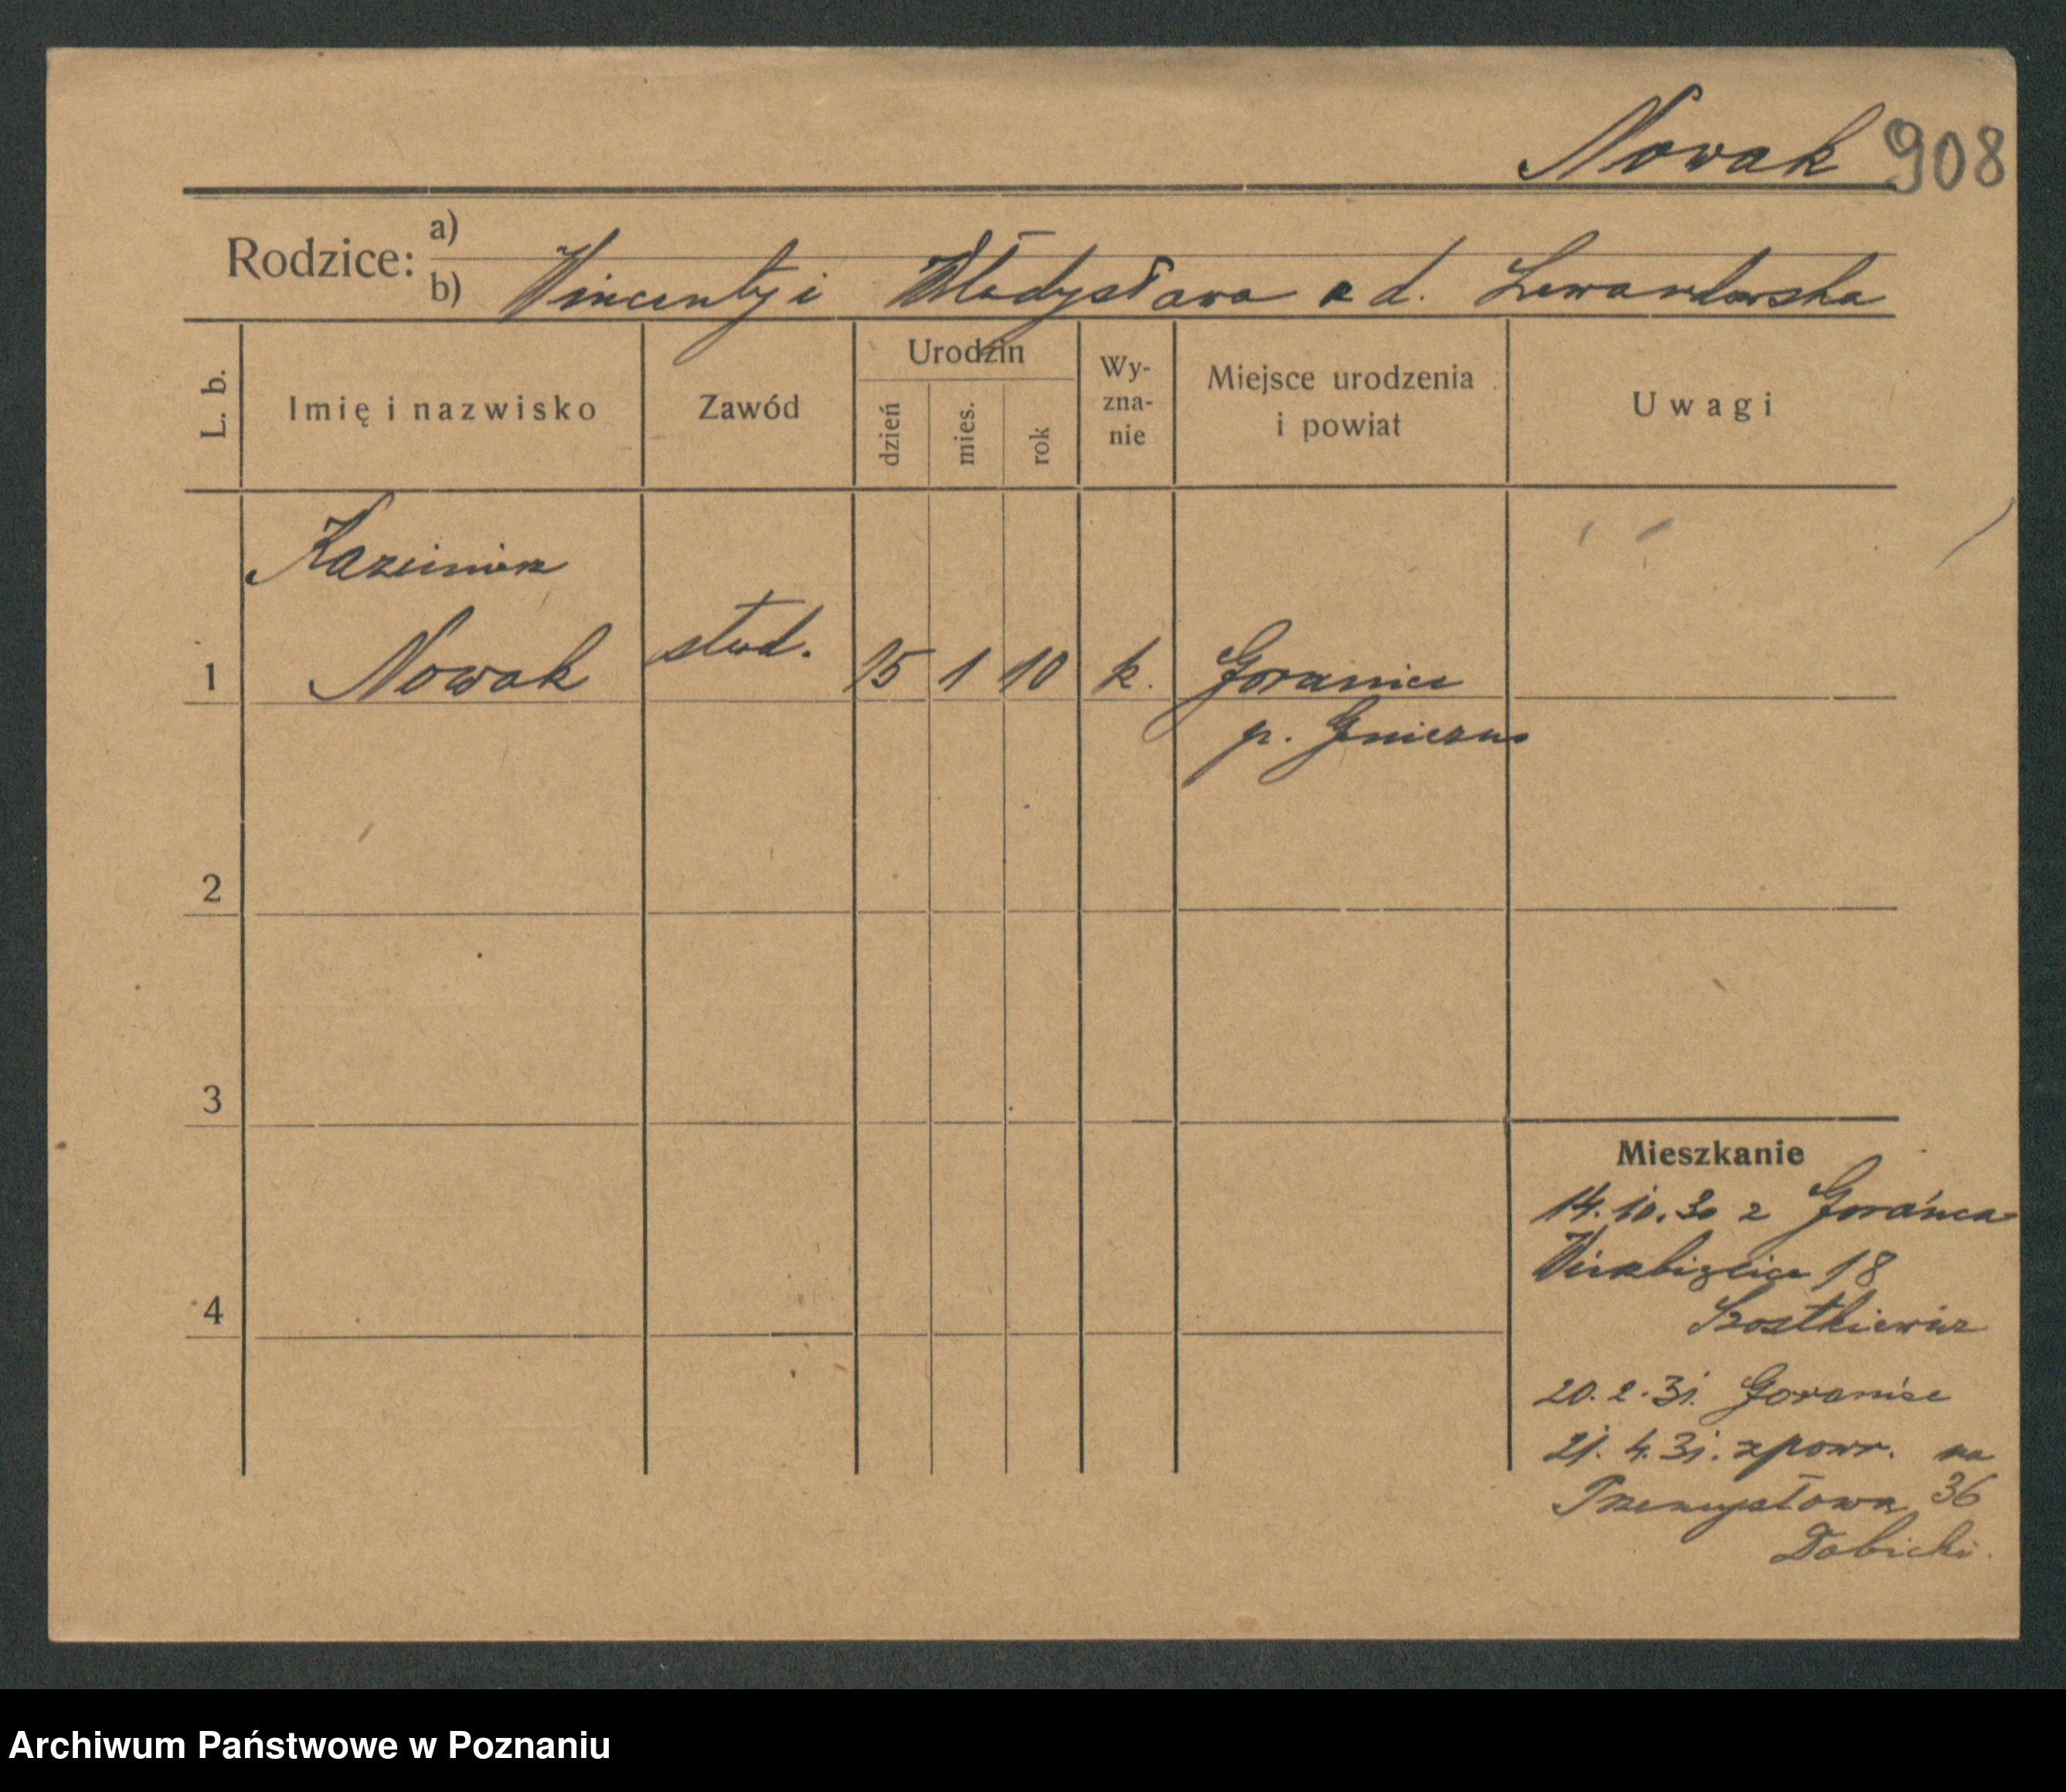 Nowak 908
Rodzice: a)
b) Wincenty i Władysława z d. Lewandowska
L. b.
Imię i nazwisko
Zawód
Urodzin
dzień
mies.
rok
Wy-
zna-
nie
Miejsce urodzenia
i powiat
Uwagi
Kazimierz
1 Nowak stud. 15 1 10 k. Goranice
p. Gniezno
2
3
4
Mieszkanie
14.10.30 z
Wierzbięcice 18
Szostkiewicz
20.2.31. Goranice
21.4.31. zpowr. na
Przemysłowa 36
Dobicki.
Archiwum Państwowe w Poznaniu